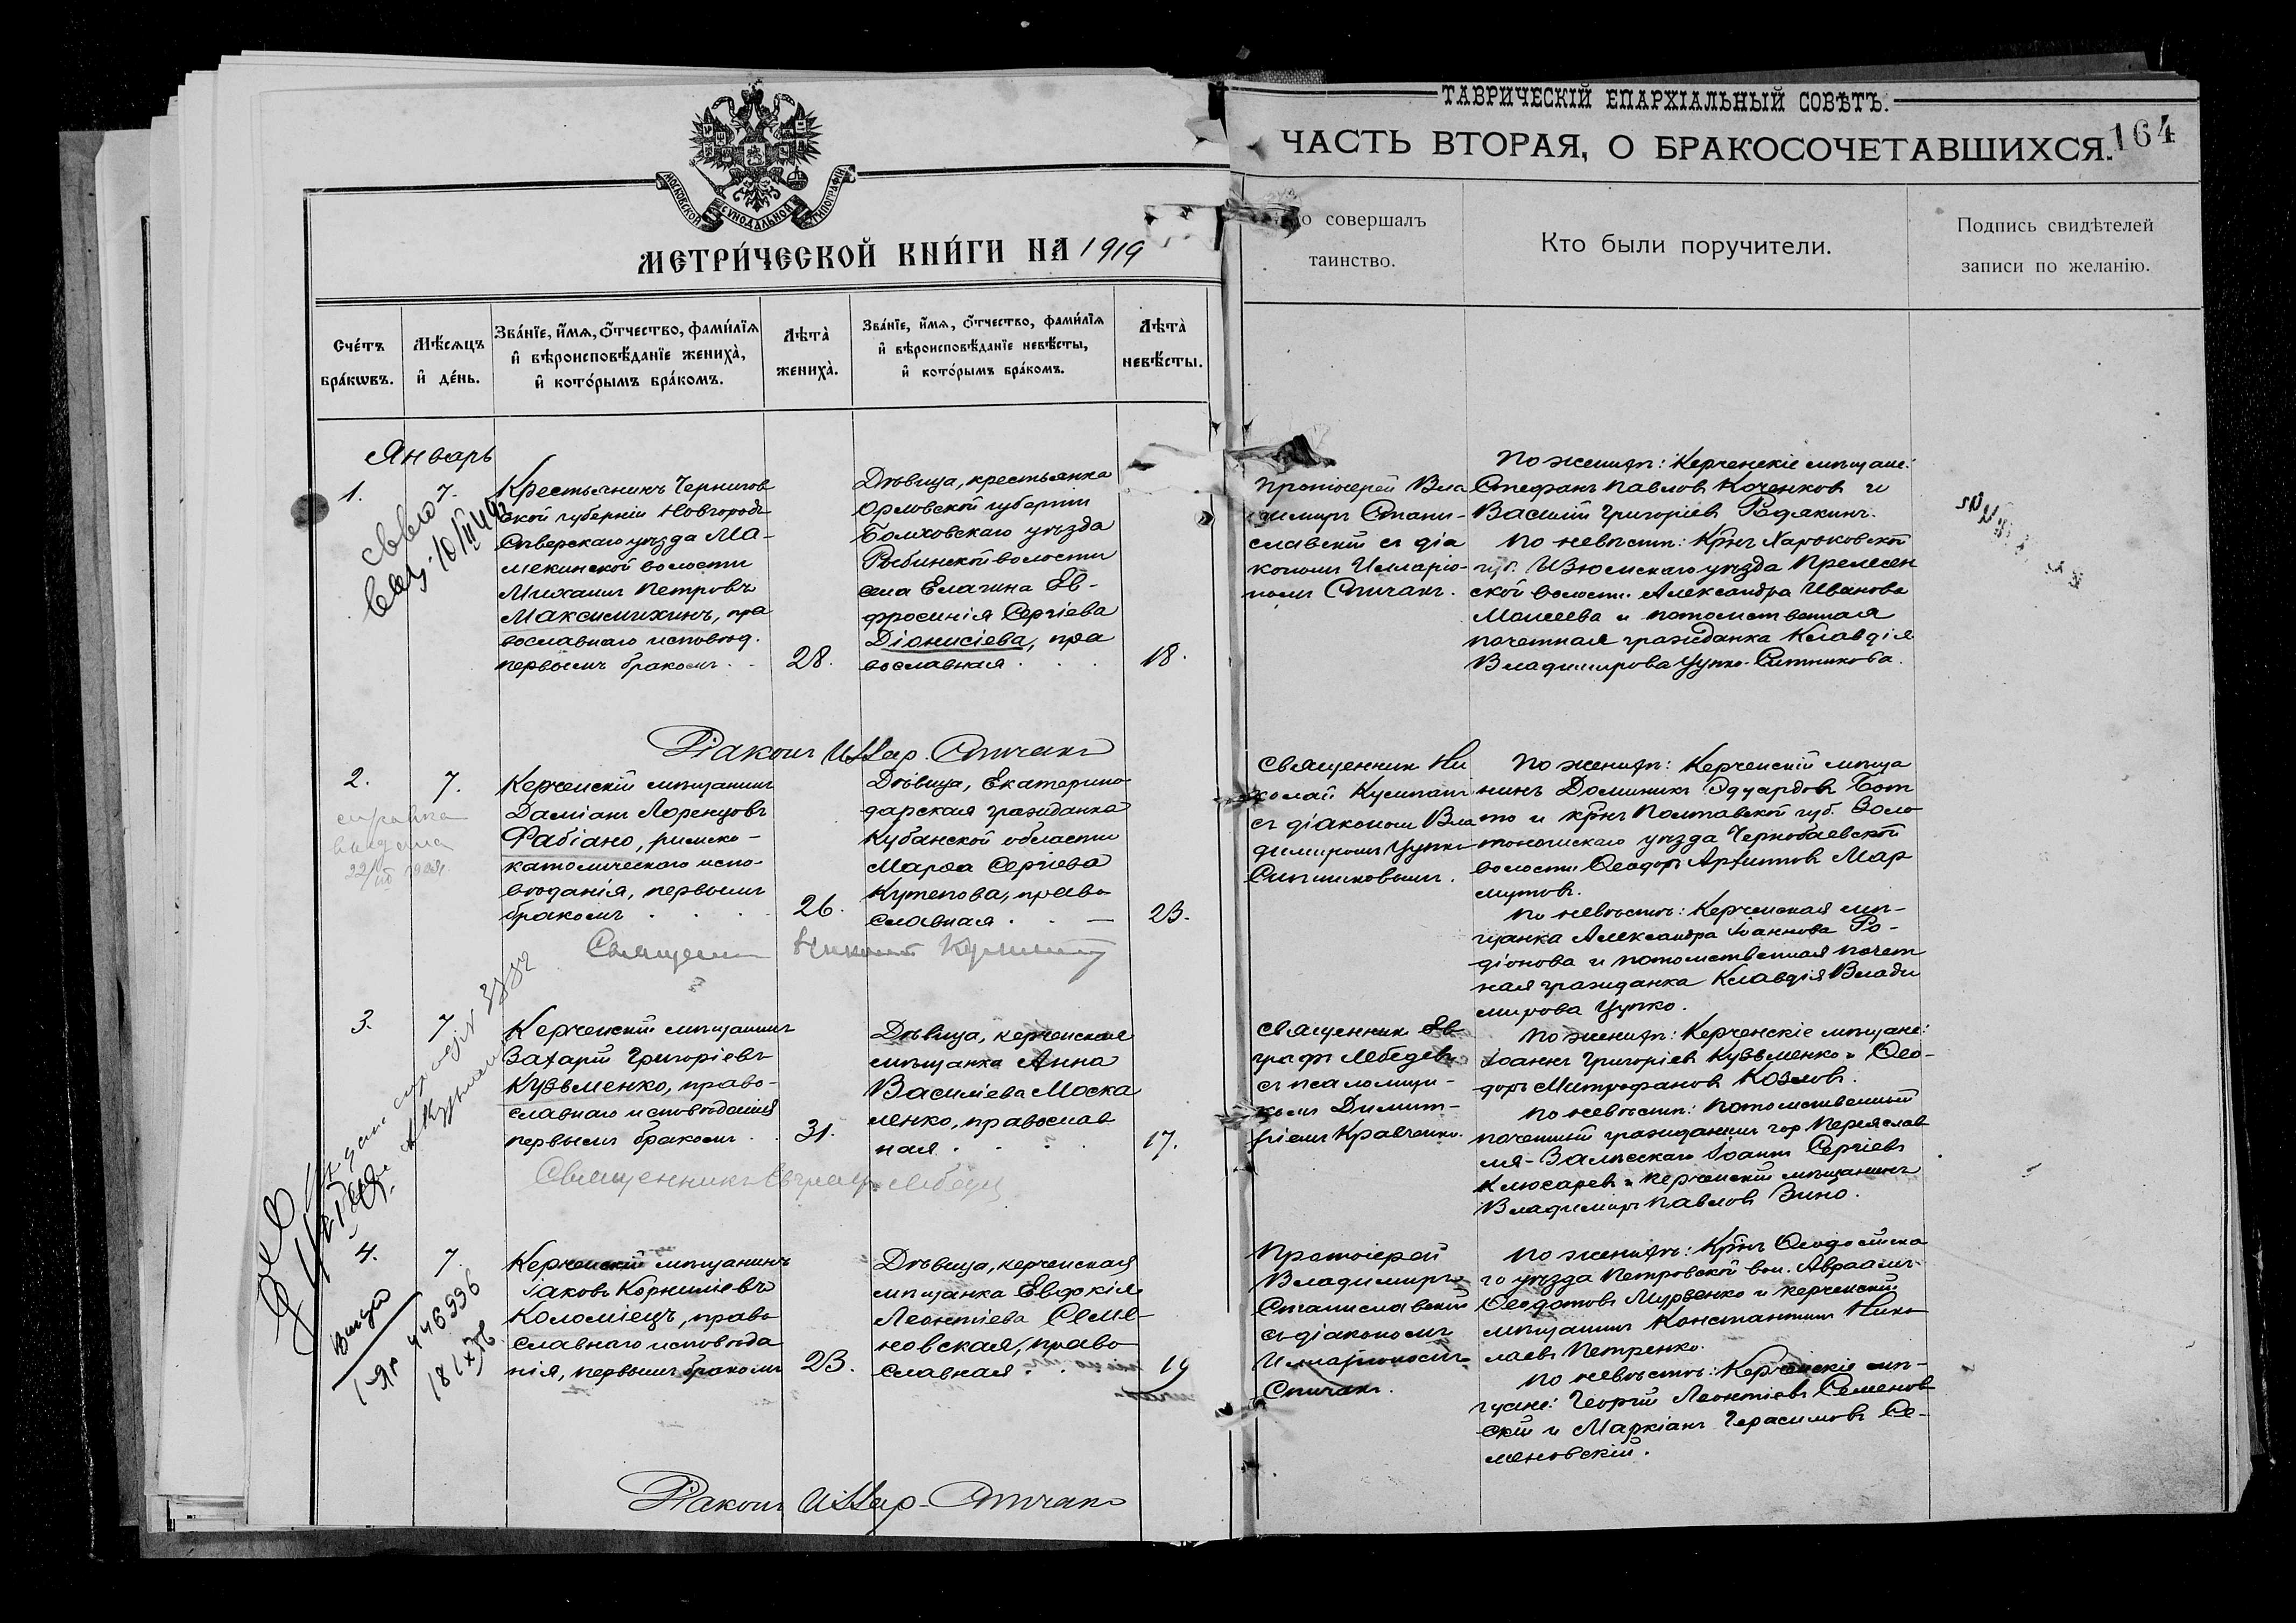 ТАВРИЧЕСКІЙ ЕПАРХІАЛЬНЫЙ СОВѢТЪ.
МОСКОВСКОЙ СѴНОДАЛЬНОЙ ТИПОГРАФІИ
МЕТРИ́ЧЕСКОЙ КНИ́ГИ НА 1919
ЧАСТЬ ВТОРАЯ, О БРАКОСОЧЕТАВШИХСЯ.
164
Сче́тъ
бра́кѡвъ.
Мѣ́сяцъ
и де́нь.
Зва́нїе, и́мѧ, ѻ́тчество, фами́лїѧ
и҆ вѣроисповѣ́данїе жениха̀,
и҆ кото́рымъ бра́комъ.
Лѣта̀
жениха̀.
Зва́нїе, и́мѧ, ѻ́тчество, фами́лїѧ
и҆ вѣроисповѣ́данїе невѣ́сты,
и҆ кото́рымъ бра́комъ.
Лѣта̀
невѣ́сты.
совершалъ
таинство.
Кто были поручители.
Подпись свидѣтелей
записи по желанію.
Январь
1.
7.
Крестьянинъ Чернигов
ской губерніи Новгородъ
Сѣверскаго уѣзда Ма-
мекинской волости
Михаилъ Петровъ
Максимихинъ, пра
вославнаго исповѣд.
первымъ бракомъ
28.
Дѣвица, крестьянка
Орловской губерніи
Болховскаго уѣзда
Рыбинской волости
села Елагина Ев-
фросинія Сергіева
Діонисіева, пра
вославная
18.
Протоіерей Вла
димиръ Стани-
славскій съ діа
кономъ Илларіо-
номъ Спичакъ.
По женихѣ: Керченскіе мѣщане:
Стефанъ Павловъ Коченков и
Василій Григоріев Родякинъ.
По невѣстѣ: Кр̃нъ Харьковской
губ. Изюмскаго уѣзда
ской волости Александра Иванова
Моисеева и потомственная
почетная гражданка Клавдія
Владимирова Цупко-Ситникова.
Діаконъ Иллар. Спичакъ
2.
справка
выдана
7.
Керченскій мѣщанинъ
Даміанъ Лоренцовъ
Фабіано, римско-
католическаго испо-
вѣданія, первымъ
бракомъ
26.
Дѣвица, Екатерино-
дарская гражданка
Кубанской области
Марѳа Сергіева
Кутепова, право
славная
23.
Священник Ни
колай Кумпан
съ діакономъ Вла
димиромъ Цупко
Ситниковымъ.
По женихѣ: Керченскій мѣща
нинъ Доминикъ Эдуардовъ Бот
то и кр̃нъ Полтавской губ. Золо
тоношскаго уѣзда Чернобаевской
волости Ѳеодоръ Архиповъ Мар
мутовъ.
По невѣстѣ: Керченская мѣ-
щанка Александра Іоаннова Ро-
діонова и потомственная почет
ная гражданка Клавдія Влади
мирова Цупко.
Священник Николай Кумпан
3.
7
Керченскій мѣщанинъ
Захарій Григоріевъ
Кузьменко, право-
славнаго исповѣданія
первымъ бракомъ
31.
Дѣвица, керченская
мѣщанка Анна
Василіева Моска
ленко, православ
ная
17.
Священник Ев
графъ Лебедевъ
съ псаломщи-
комъ Димит-
ріемъ Кравченко.
По женихѣ: Керченскіе мѣщане:
Іоаннъ Григоріев Кузьменко и Ѳео-
доръ Митрофанов Козловъ.
По невѣстѣ: Потомственный
почетный гражданинъ гор. Переяслав
ля-Залѣсскаго Іоаннъ Сергіевъ
Ключарев и керченскій мѣщанинъ
Владимиръ Павловъ Зино.
Священникъ Евграфъ Лебедев
4.
7.
Керченскій мѣщанинъ
Іаковъ Корниліевъ
Коломіецъ, право
славнаго исповѣда
нія, первымъ бракомъ
23.
Дѣвица, керченская
мѣщанка Евдокія
Леонтіева Семе-
новская, право
славная
19
Протоіерей
Владимиръ
Станиславскій
съ діакономъ
Илларіономъ
Спичакъ.
По женихѣ: Кр̃нъ Ѳеодосійска
го уѣзда Петровской вол. Авраамъ
Ѳеодотовъ Мурзенко и керченскій
мѣщанинъ Константинъ Нико
лаевъ Петренко.
По невѣстѣ: Керченскіе мѣ-
щане: Георгій Леонтіевъ Семенов
скій и Маркіанъ Герасимовъ Се-
меновскій.
Діаконъ Иллар. Спичакъ